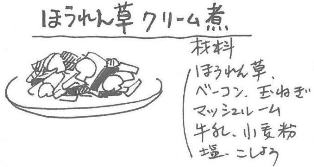 ほうれん草クリーム煮
材料
ほうれん草、
ベーコン、玉ねぎ
マッシュルーム
牛乳、小麦粉
塩、こしょう